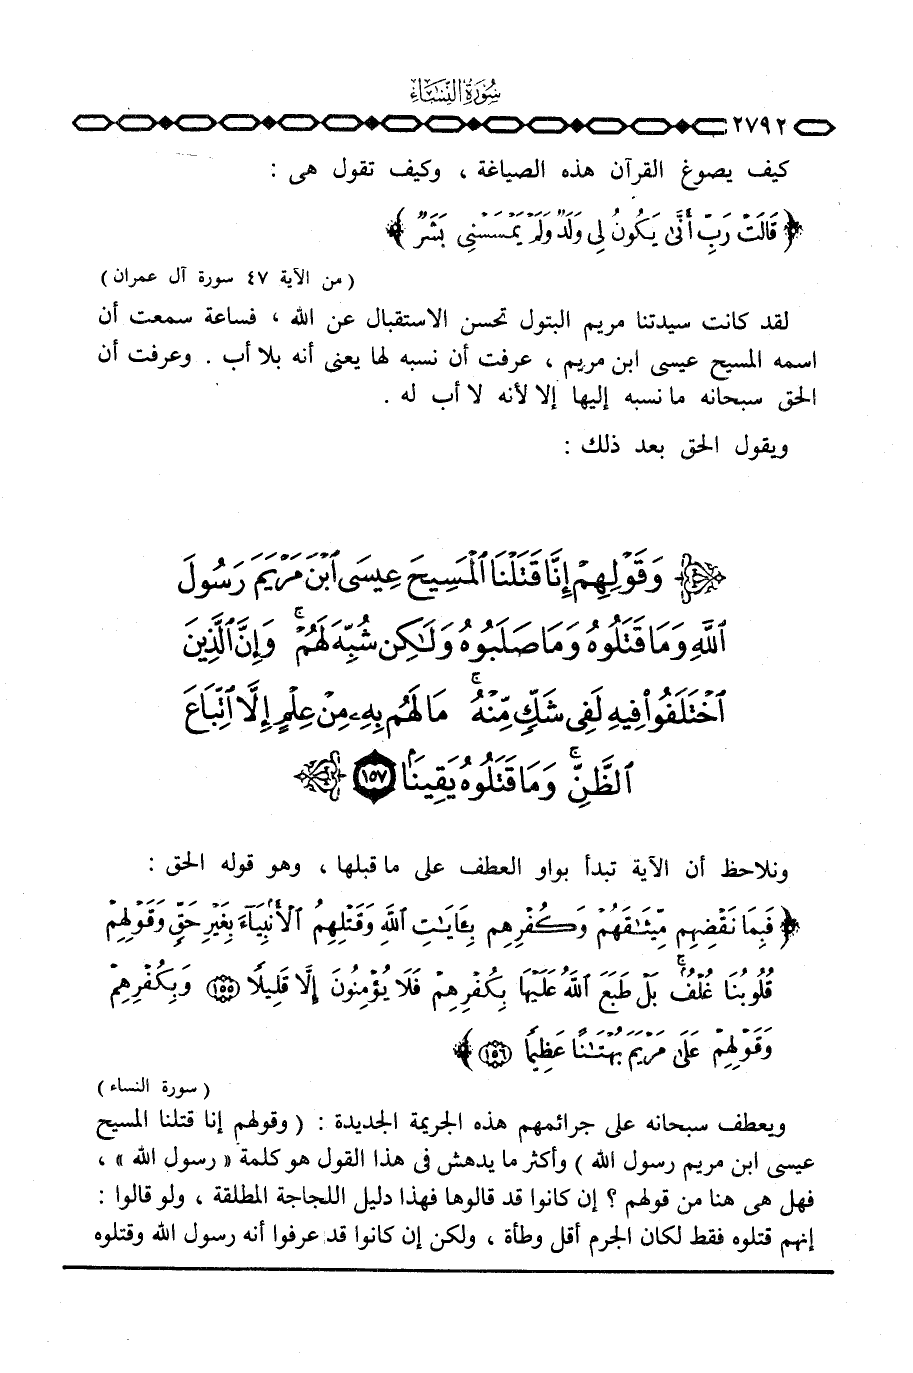 سُورَةُ النِّسَاءِ
٢٧٩٢
كيف يصوغ القرآن هذه الصياغة ، وكيف تقول هى :
﴿ قَالَتْ رَبِّ أَنَّىٰ يَكُونُ لِى وَلَدٌ وَلَمْ يَمْسَسْنِى بَشَرٌ ﴾
( من الآية ٤٧ سورة آل عمران )
لقد كانت سيدتنا مريم البتول تحسن الاستقبال عن الله ، فساعة سمعت أن
اسمه المسيح عيسى ابن مريم ، عرفت أن نسبه لها يعنى أنه بلا أب . وعرفت أن
الحق سبحانه ما نسبه إليها إلا لأنه لا أب له .
ويقول الحق بعد ذلك :
﴿ وَقَوْلِهِمْ إِنَّا قَتَلْنَا ٱلْمَسِيحَ عِيسَى ٱبْنَ مَرْيَمَ رَسُولَ
ٱللَّهِ وَمَا قَتَلُوهُ وَمَا صَلَبُوهُ وَلَٰكِن شُبِّهَ لَهُمْ ۚ وَإِنَّ ٱلَّذِينَ
ٱخْتَلَفُوا۟ فِيهِ لَفِى شَكٍّ مِّنْهُ ۚ مَا لَهُم بِهِۦ مِنْ عِلْمٍ إِلَّا ٱتِّبَاعَ
ٱلظَّنِّ ۚ وَمَا قَتَلُوهُ يَقِينًۢا ١٥٧ ﴾
ونلاحظ أن الآية تبدأ بواو العطف على ما قبلها ، وهو قوله الحق :
﴿ فَبِمَا نَقْضِهِم مِّيثَٰقَهُمْ وَكُفْرِهِم بِـَٔايَٰتِ ٱللَّهِ وَقَتْلِهِمُ ٱلْأَنۢبِيَآءَ بِغَيْرِ حَقٍّ وَقَوْلِهِمْ
قُلُوبُنَا غُلْفٌۢ ۚ بَلْ طَبَعَ ٱللَّهُ عَلَيْهَا بِكُفْرِهِمْ فَلَا يُؤْمِنُونَ إِلَّا قَلِيلًا ١٥٥ وَبِكُفْرِهِمْ
وَقَوْلِهِمْ عَلَىٰ مَرْيَمَ بُهْتَٰنًا عَظِيمًا ١٥٦ ﴾
( سورة النساء )
ويعطف سبحانه على جرائمهم هذه الجريمة الجديدة : ( وقولهم إنا قتلنا المسيح
عيسى ابن مريم رسول الله ) وأكثر ما يدهش فى هذا القول هو كلمة « رسول الله » ،
فهل هى هنا من قولهم ؟ إن كانوا قد قالوها فهذا دليل اللجاجة المطلقة ، ولو قالوا :
إنهم قتلوه فقط لكان الجرم أقل وطأة ، ولكن إن كانوا قد عرفوا أنه رسول الله وقتلوه